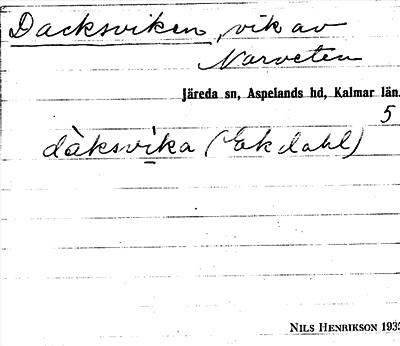 Dacksviken, vik av
Narveten
Järeda sn, Aspelands hd, Kalmar län.
5
dàksvika (Ekdahl)
NILS HENRIKSON 193